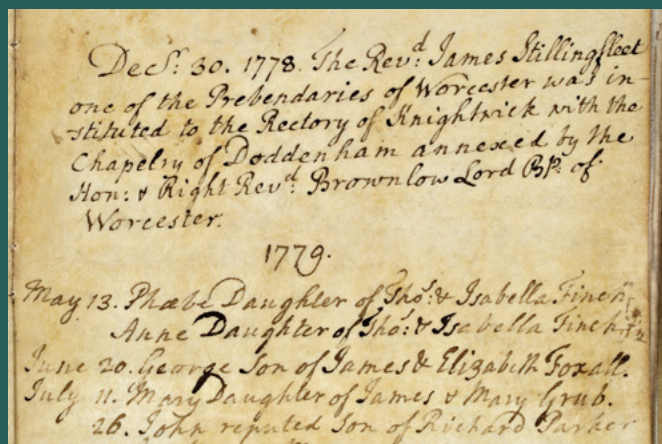 Decr: 30. 1778. The Revd: James Stillingfleet
one of the Prebendaries of Worcester was in-
-stituted to the Rectory of Knightwick with the
Chapelry of Doddenham annexed by the
Hon: & Right Revd: Brownlow Lord Bp: of
Worcester.
1779.
May 13. Phœbe Daughter of Thos: & Isabella Finch
Anne Daughter of Tho: & Isabella Finch
June 20. George Son of James & Elizabeth Foxall.
July 11. Mary Daughter of James & Mary Grub.
26. John reputed Son of Richard Parker